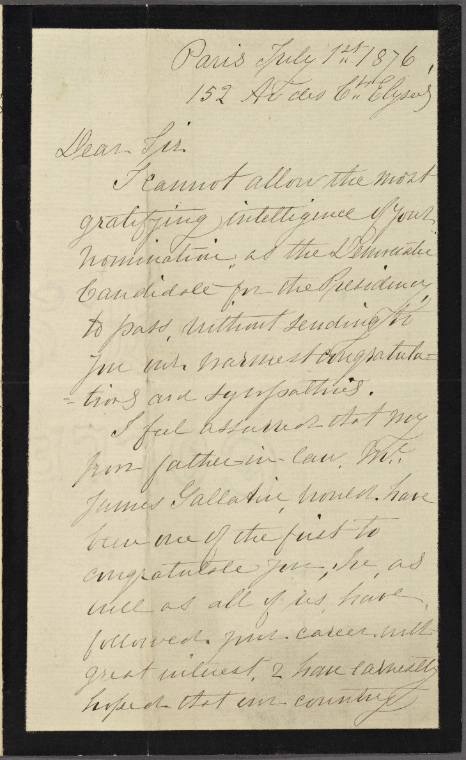 Paris July 1st 1876,
152 Av des Chs Elysees
Dear Sir
I cannot allow the most
gratifying intelligence of your
nomination as the Democratic
Candidate for the Presidency
to pass, without sending to
you our warmest congratula=
=tions and sympathies.
I feel assured that my
poor father-in-law, Mr.
James Gallatin, would have
been one of the first to
congratulate you, he, as
well as all of us, have
followed your career with
great interest, & have earnestly
hoped that our country